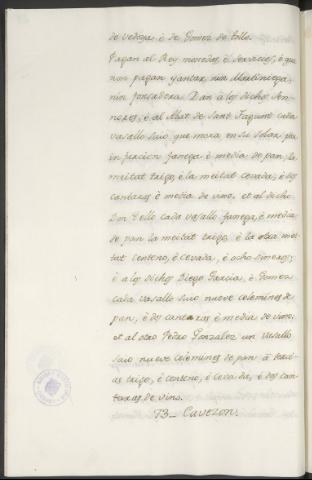 de Vedoya, è de Gomez de Tollo.
Pagan al Rey monedas, è servicios, è que
non pagan yantar, nin Martiniega,
nin fonsadera. Dan à los dichos Sen-
nores, è al Abat de Sant Fagunt cada
vasallo suio que mora en su solar por
infurcion fanega è media de pan, la
meitat trigo, è la meitat cevada, è dos
cantaras è media de vino, et al dicho
Don Tello cada vasallo fanega, è media
de pan la meitat trigo, è la otra mei-
tat centeno, è cevada, è ocho dineros;
è a los dichos Diego Garcia, è Gomez
cada vasallo suio nueve celemines de
pan, è dos cantaras è media de vino,
et al otro Pedro Gonzalez un vasallo
suio nueve celemines de pan à terci-
as trigo, è centeno, è cevada, è dos can-
taras de vino.
73_ Cavezon.